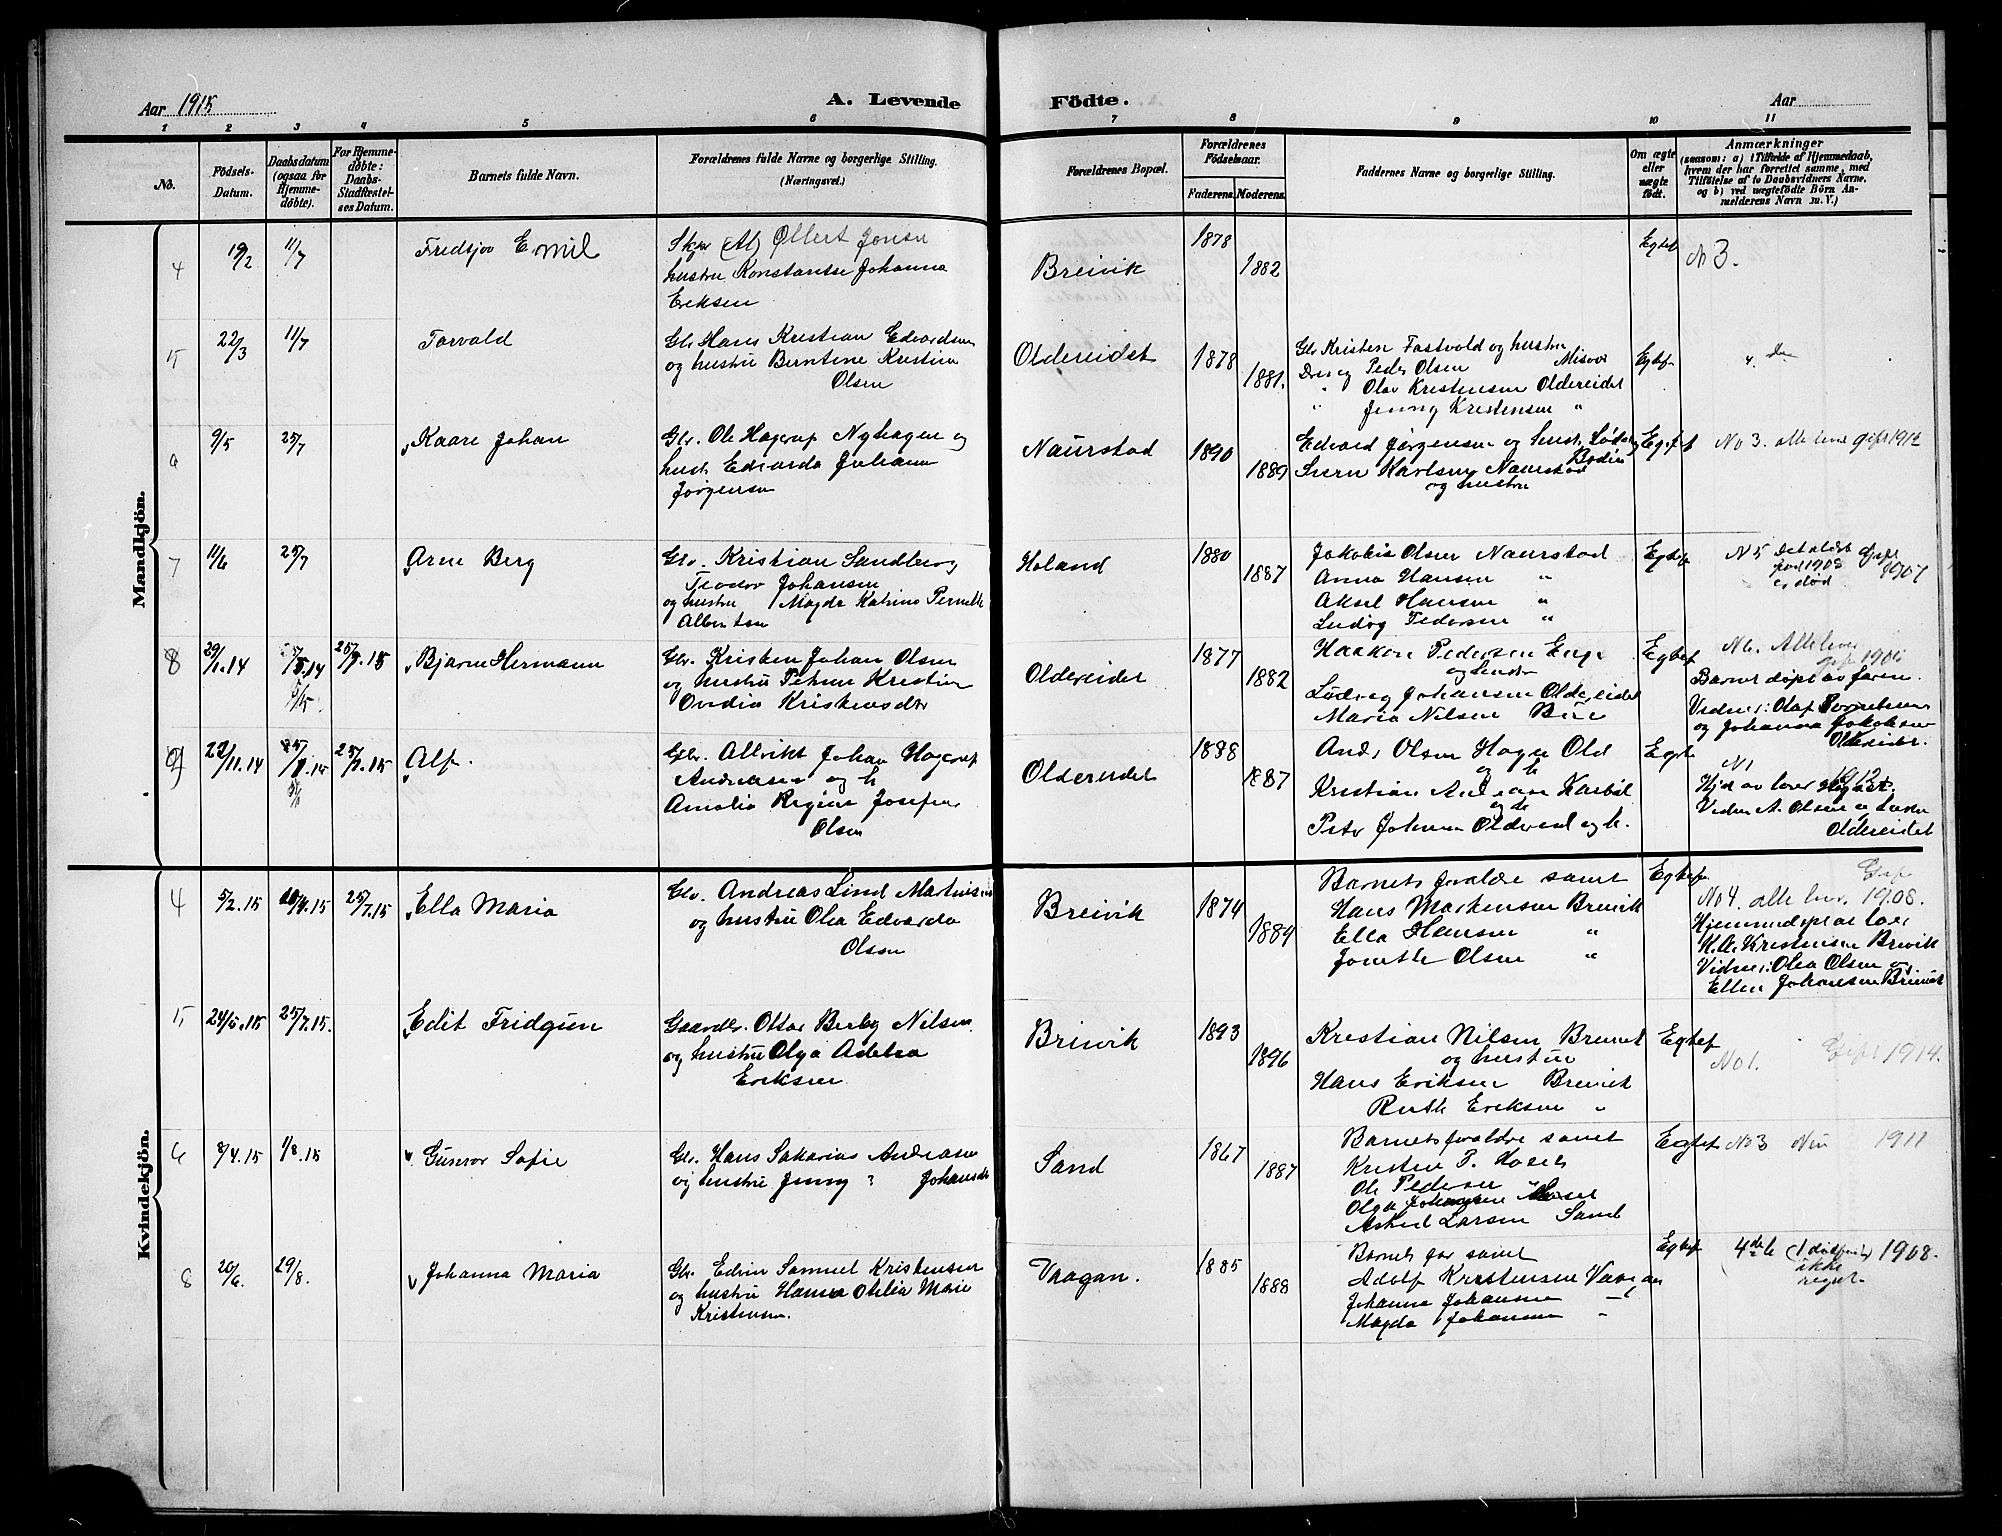 Aar 1915
A. Levende
Födte.
Aar
1 2 3 4 5 6 7 8 9 10 11
No.
Fødsels-
Datum.
Daabsdatum
(ogsaa for
Hjemme-
døbte).
For Hjemme-
døbte:
Daabs-
Stadfæstel-
ses Datum.
Barnets fulde Navn.
Forældrenes fulde Navne og borgerlige Stilling.
(Næringsvei.)
Forældrenes Bopæl.
Forældrenes
Fødselsaar.
Faderens. Moderens.
Faddernes Navne og borgerlige Stilling.
Om ægte
eller
uægte
født.
Anmærkninger
(saasom: a) i Tilfælde af Hjemmedaab,
hvem der har forrettet samme, med
Tilføielse af to Daabsvidners Navne,
og b) ved uægtefødte Börn An-
melderens Navn m. V.)
Mandkjön.
4 19/2 11/7 Fredsjov Emil
Ollert Jensen
hustru Konstantse Johanna
Eriksen
Breivik 1878 1882 Egtef No 3.
5 22/3 11/7 Torvald
Gbr Hans Kristian Edvardsen
og hustru Berntine Kristine
Olsen
Oldereidet 1878 1881.
Gbr Kristen Fastvold og hustru
Misvær
Peder Olsen
" Olav Kristensen Oldereidet
" Jenny Kristensen "
Egtef 4. de
6 9/5 25/7 Kaare Johan
Gbr. Ole Hagerup Nyhagen og
hust. Edvarda Johanna
Jørgensen
Naurstad 1890 1889
Edvard Jørgensen og hust.
Bodin
Karlsen Naurstad
og hustru
Egtef No 3. alle leve gift 1912
7 11/6 25/7 Arne Berg
Gbr. Kristian Sandberg
Teodor Johansen
og hustru Magda Katrine Pernelle
Albertsen
Holand 1880 1887
Jakobie Olsen Naurstad
Anna Hansen "
Aksel Hansen "
Ludvig Pedersen "
Egtef N 5 Det ældst Gift
1907
er død
8 29/1.14 25/7.15 Bjarne Hermann
Gbr. Kristen Johan Olsen
og hustru Petrine Kristine
Ovidia Kristensdtr
Oldereidet 1877 1882
Haakon Pedersen Enge
og hustru
Ludvig Johansen Oldereidet
Maria Nilsen
Egtef N6. Alle lever
Gift
Barnet døpt av faren.
Vidner: Olaf
og Johanna Jakobsen
Oldereidet.
9 22/11.14 25/7.15 Alf.
Gbr. Johan Hagerup
Andreasen og h
Amalia Regine Josefine
Olsen
Oldereidet 1888 1887
Olsen Old
og h
Kristian
Peter Johansen og h.
Egtef N1
1912
Hjd av lærer
Vidner A. Olsen og
Oldereidet
Kvindekjön.
4 5/2.15 25/7.15 Ella Maria
Gbr. Andreas Lind Martinsen
og hustru Olea Edvarda
Olsen
Breivik 1874 1884
Barnets forældre samt
Hans Martensen Breivik
Ella Hansen "
Jonette Olsen "
Egtef Gift
No 4. alle lever. 1908.
Hjemmedøpt av lærer
K.A. Kristensen Breivik
Vidner: Olea Olsen og
Ellen Johansen Breivik
5 24/5.15 25/7.15. Edit Fridgun
Gaardbr. Ottar Berby Nilsen
og hustru Olga Adelea
Eriksen
Breivik 1893 1896
Kristian Nilsen Breivik
og hustru
Hans Eriksen Breivik
Ruth Eriksen "
Egtef No 1. Gift 1914.
6 8/4.15 1/8.15 Gunvor Sofie
Gbr. Hans Sakarias Andreasen
og hustru Jenny ? Johansdtr
Sand 1867 1887
Barnets forældre samt
Kristen P.
Ole Pedersen "
Olga Johansen
Astrid Larsen Sand
Egtef No 3 1911
8 20/6. 29/8. Johanna Maria
Gbr. Edvin Samuel Kristensen
og hustru Hanna Otelie Marie
Kristensen.
Vaagan. 1885 1888
Barnets far samt
Adolf Kristensen Vaagan
Johanna Johansen
Magda Johansen "
Egtef 4de b (1 dødfødt 1908.
ikke
regnet